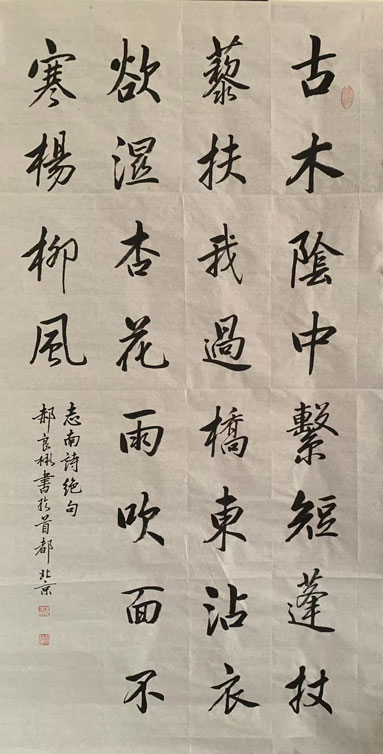 古木陰中繫短蓬杖
藜扶我過橋東沾衣
欲濕杏花雨吹面不
寒楊柳風
志南詩絶句
郝良彬書於首都北京